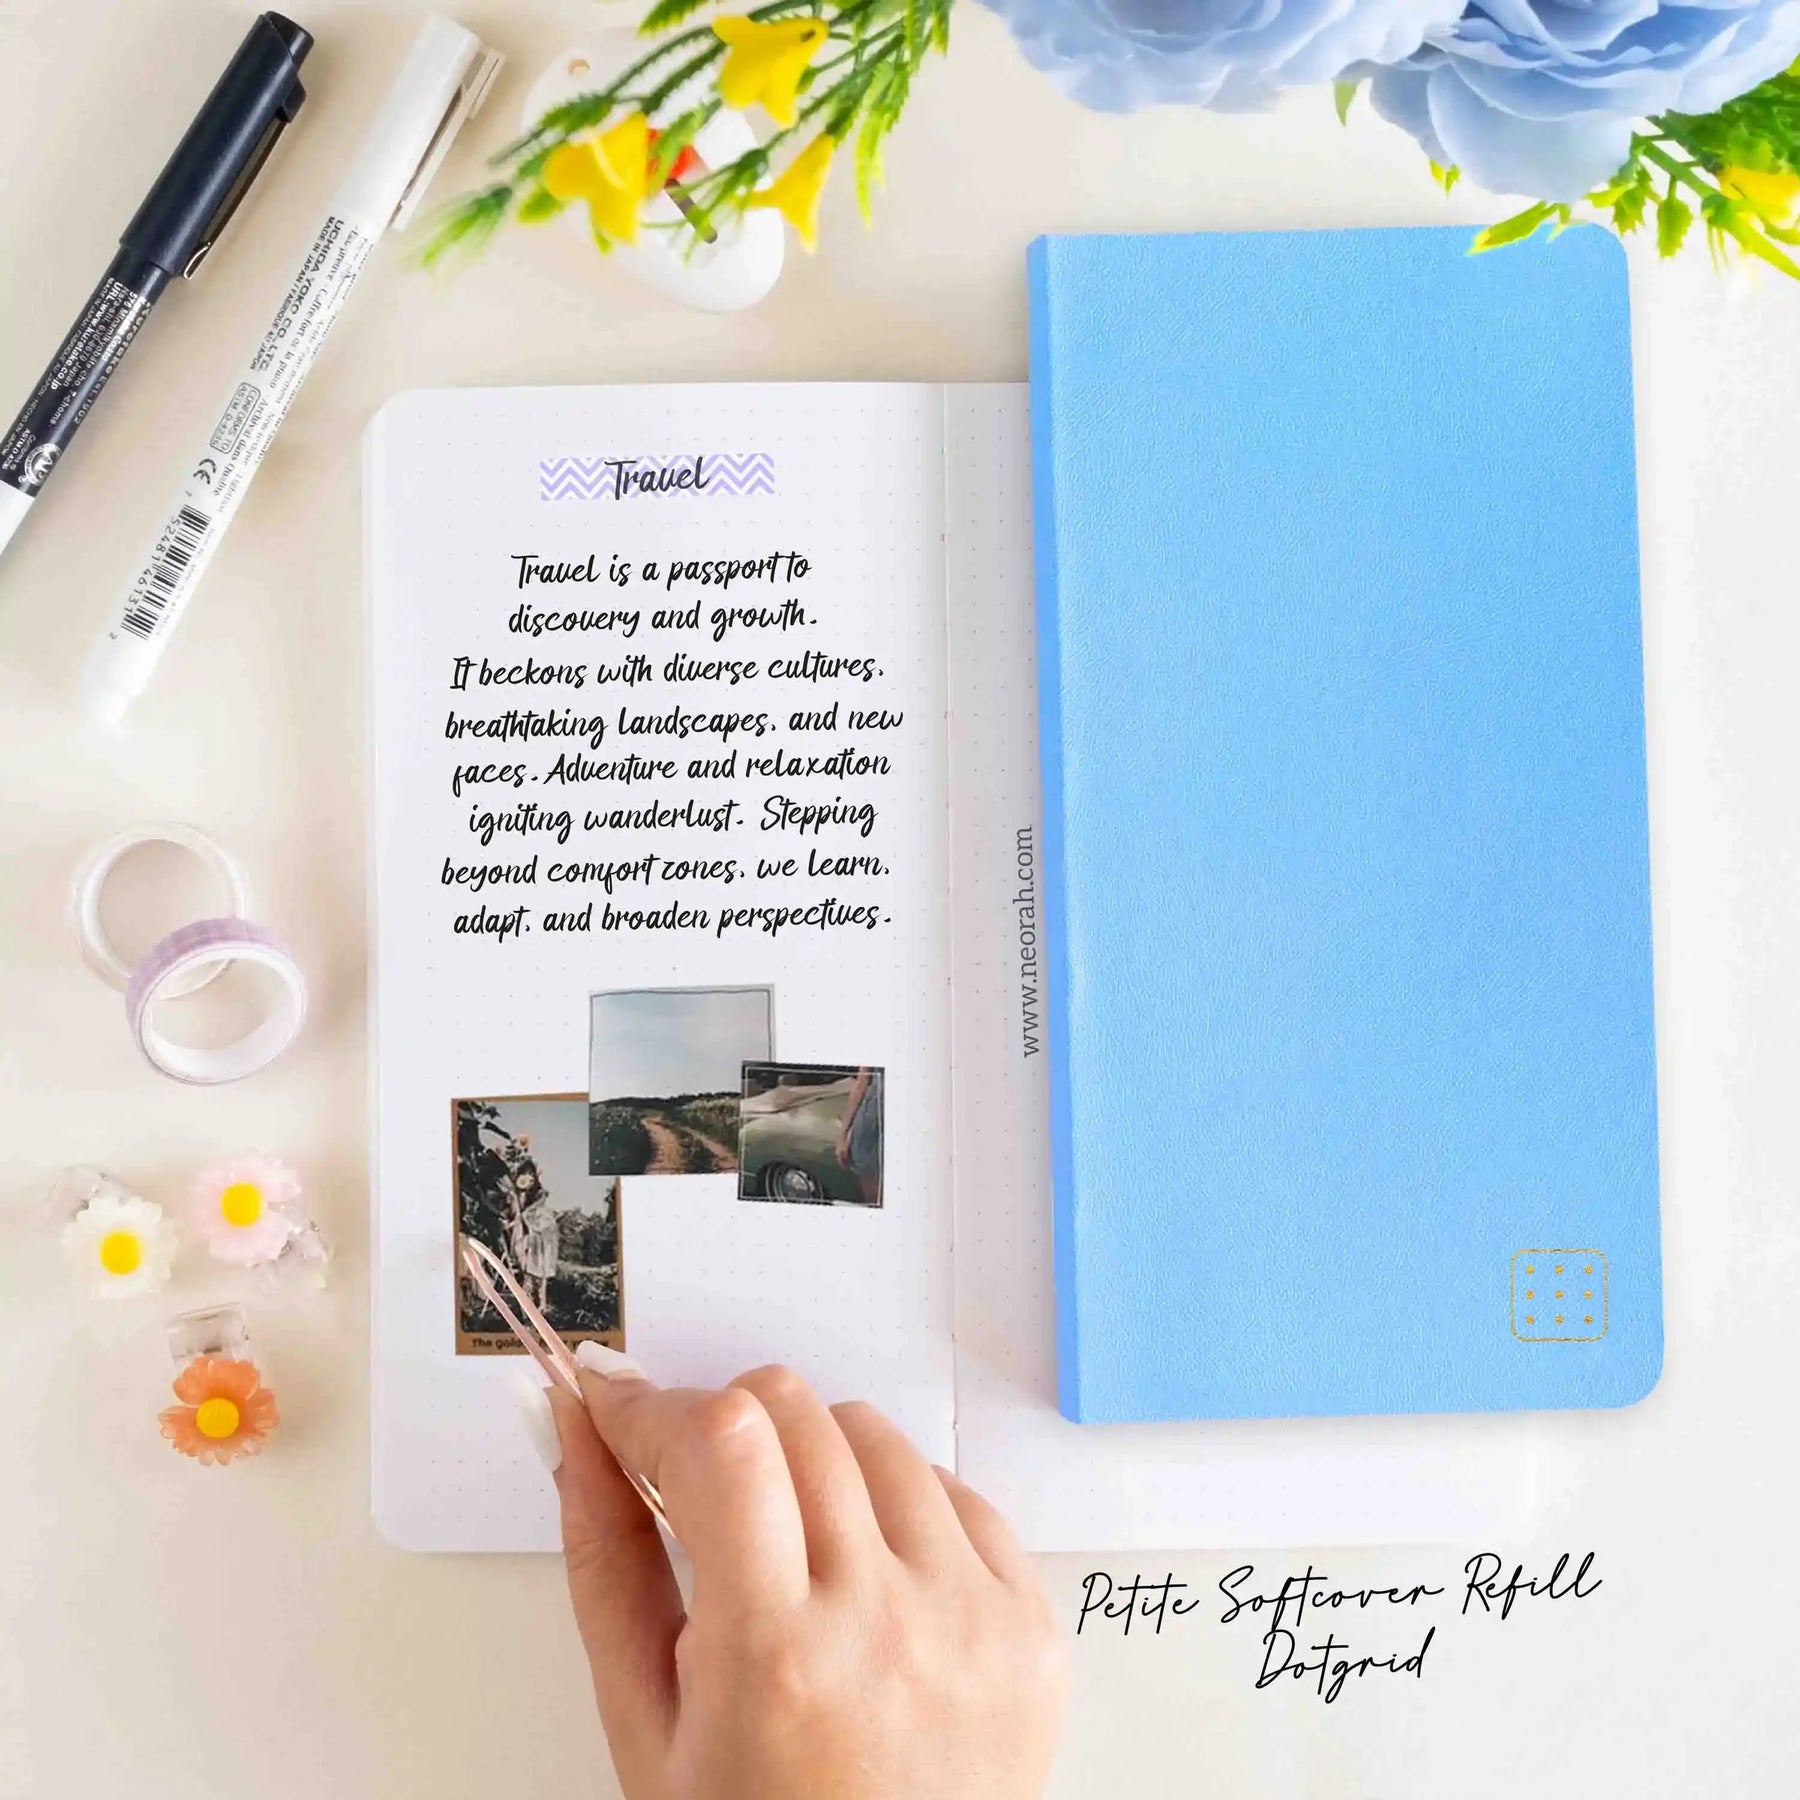 Travel
Travel is a passport to
discovery and growth.
It beckons with diverse cultures,
breathtaking landscapes, and new
faces. Adventure and relaxation
igniting wanderlust. Stepping
beyond comfort zones, we learn,
adapt, and broaden perspectives.
www.neorah.com
Petite Softcover Refill
Dotgrid
UCHIDA YOKO CO., LTD.
MADE IN JAPAN
CONFORMS TO
ASTM D-4236
CE
URL:www.kuretake.co.jp
The